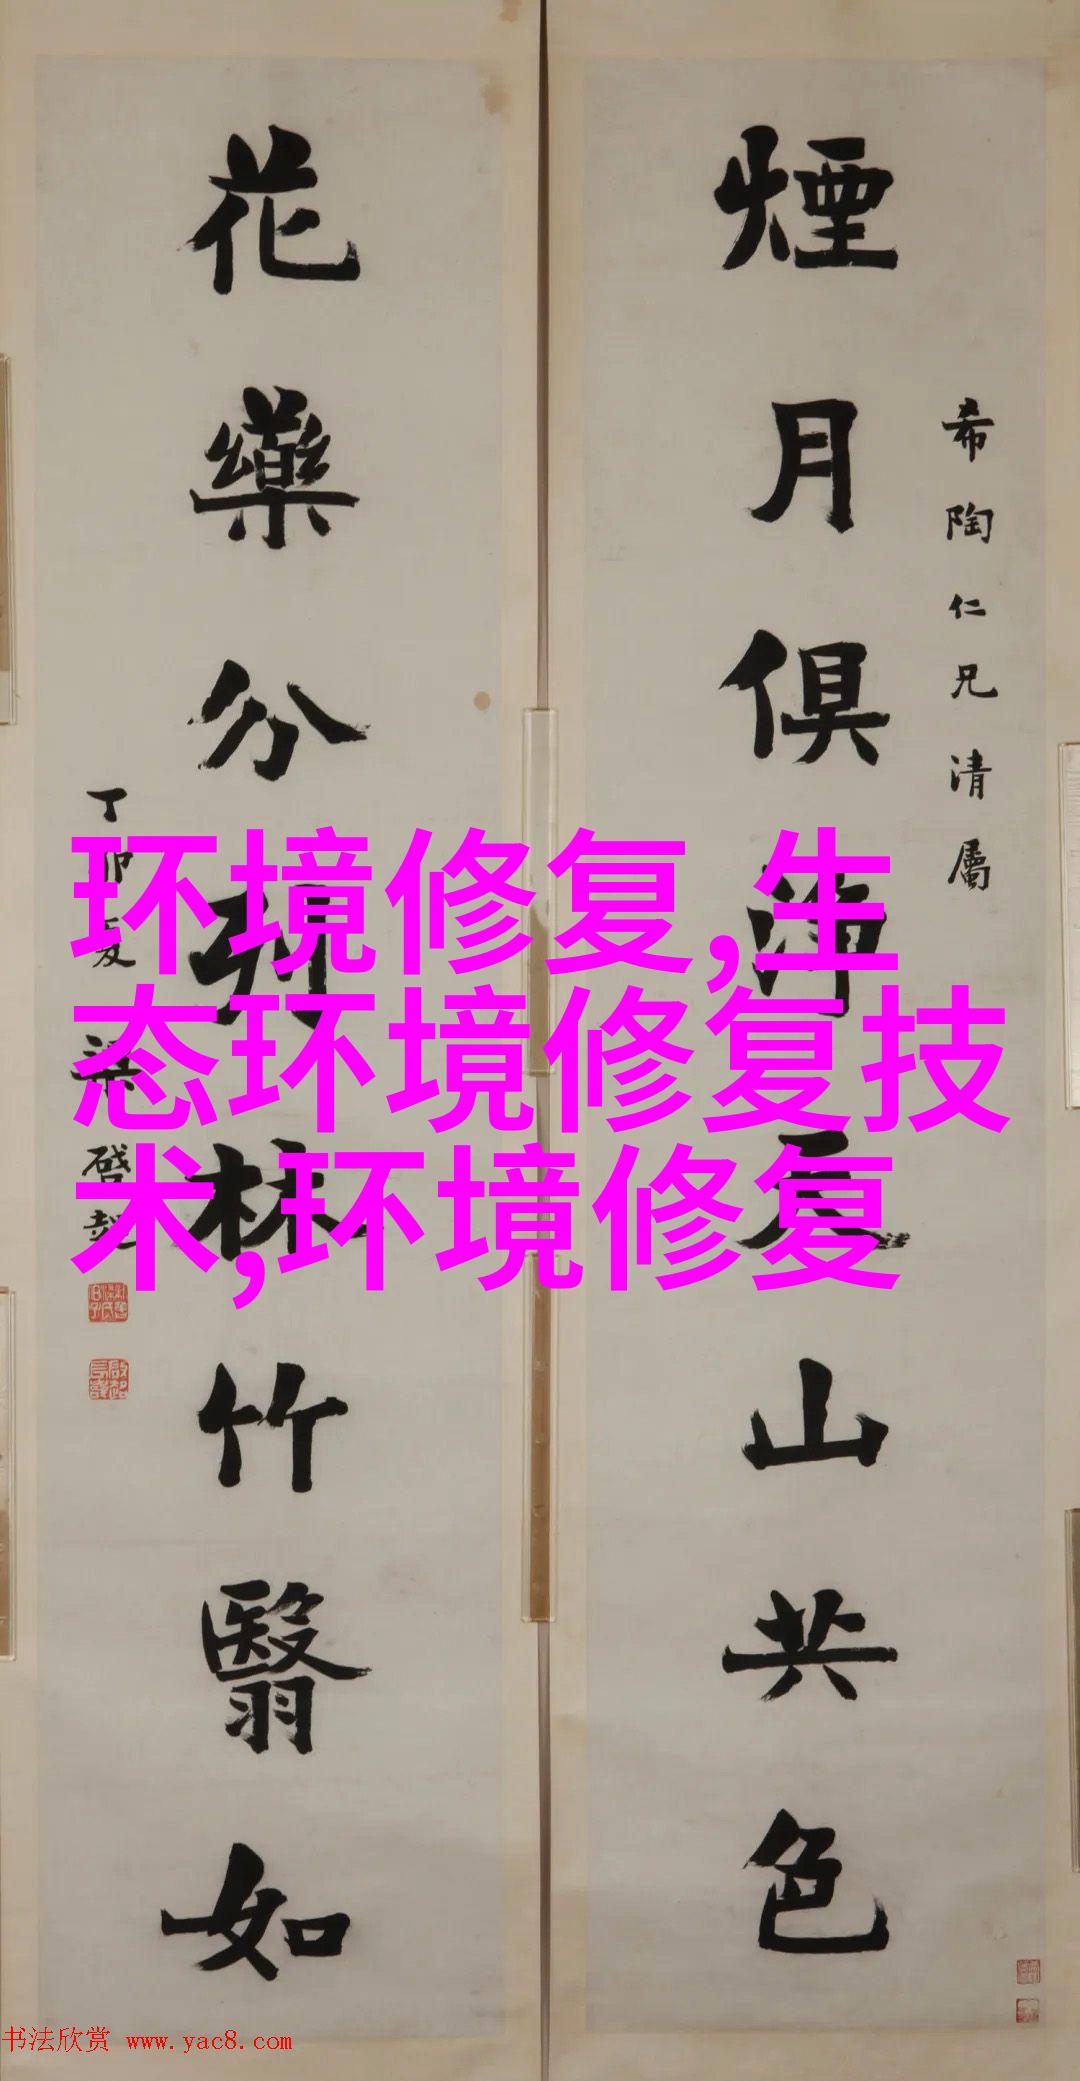 希陶仁兄清屬
煙月俱淨天山共色
花藥分列林竹翳如
丁卯夏 梁啓超
环境修复,生
态环境修复技
术,环境修复
书法欣赏 www.yac8.com